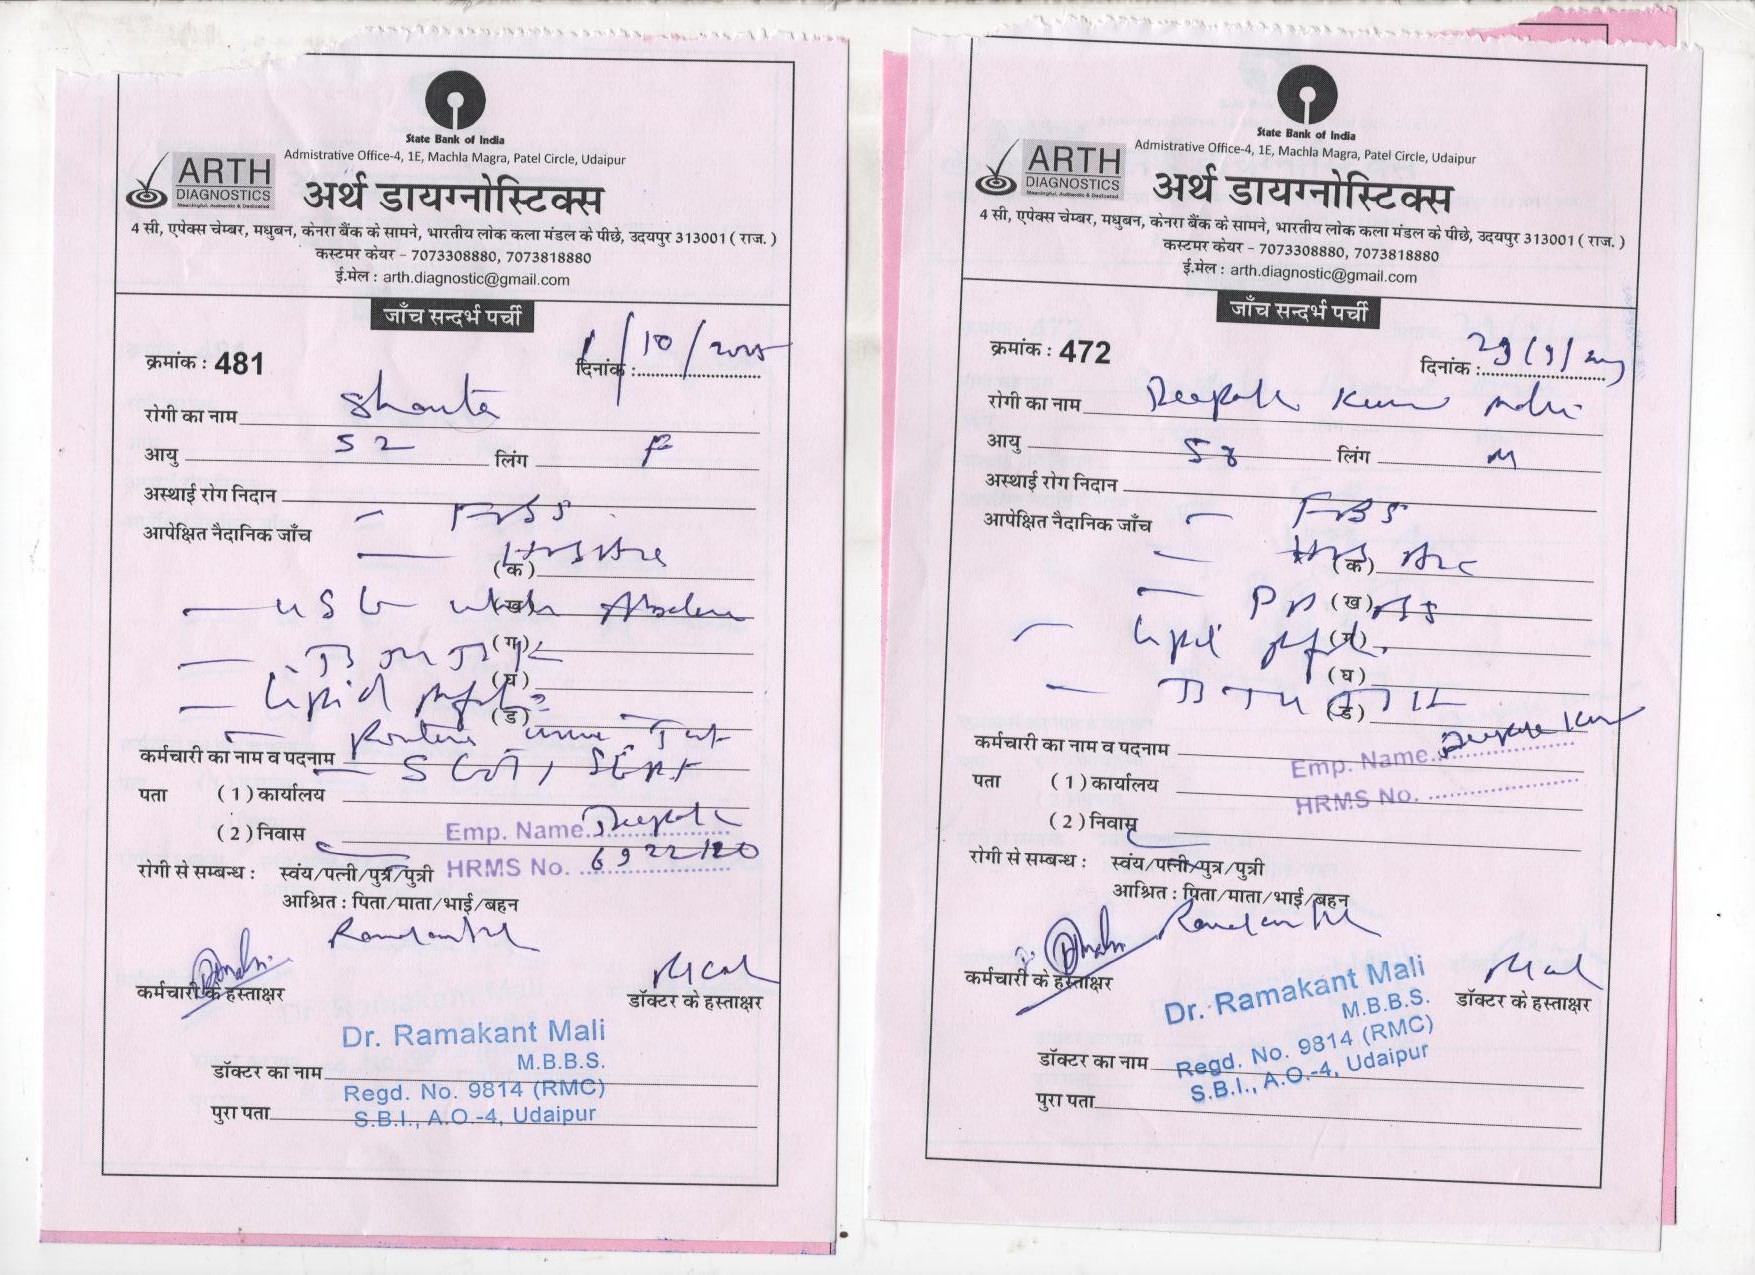 State Bank of India
Admistrative Office-4, 1E, Machla Magra, Patel Circle, Udaipur
ARTH
DIAGNOSTICS
Meaningful, Authentic & Dedicated
अर्थ डायग्नोस्टिक्स
4 सी, एपेक्स चेम्बर, मधुबन, केनरा बैंक के सामने, भारतीय लोक कला मंडल के पीछे, उदयपुर 313001 ( राज. )
कस्टमर केयर – 7073308880, 7073818880
ई.मेल : arth.diagnostic@gmail.com
जाँच सन्दर्भ पर्ची
क्रमांक : 481 दिनांक : 1/10/2025
रोगी का नाम Shanta
आयु 52 लिंग F
अस्थाई रोग निदान
आपेक्षित नैदानिक जाँच – FBS
(क) – HbA1c
(ख) – USG whole Abdomen
(ग) –
(घ) – Lipid profile
(ड) – Routine urine Test
कर्मचारी का नाम व पदनाम – SGOT, SGPT
पता (1) कार्यालय
(2) निवास Emp. Name Deepak
रोगी से सम्बन्ध : स्वंय/पत्नी/पुत्र/पुत्री HRMS No. 6922120
आश्रित : पिता/माता/भाई/बहन
Ramakant
कर्मचारी के हस्ताक्षर डॉक्टर के हस्ताक्षर
Dr. Ramakant Mali
M.B.B.S.
डॉक्टर का नाम
Regd. No. 9814 (RMC)
पुरा पता S.B.I., A.O.-4, Udaipur
State Bank of India
Admistrative Office-4, 1E, Machla Magra, Patel Circle, Udaipur
ARTH
DIAGNOSTICS
Meaningful, Authentic & Dedicated
अर्थ डायग्नोस्टिक्स
4 सी, एपेक्स चेम्बर, मधुबन, केनरा बैंक के सामने, भारतीय लोक कला मंडल के पीछे, उदयपुर 313001 ( राज. )
कस्टमर केयर – 7073308880, 7073818880
ई.मेल : arth.diagnostic@gmail.com
जाँच सन्दर्भ पर्ची
क्रमांक : 472 दिनांक : 29/9/
रोगी का नाम Deepak Kumar Mali
आयु 58 लिंग M
अस्थाई रोग निदान
आपेक्षित नैदानिक जाँच – FBS
(क) – Hb A1c
(ख) – PPBS
(ग) – Lipid profile
(घ)
(ड) –
कर्मचारी का नाम व पदनाम Emp. Name Deepak Kumar
पता (1) कार्यालय HRMS No.
(2) निवास
रोगी से सम्बन्ध : स्वंय/पत्नी/पुत्र/पुत्री
आश्रित : पिता/माता/भाई/बहन
Ramakant
कर्मचारी के हस्ताक्षर डॉक्टर के हस्ताक्षर
Dr. Ramakant Mali
M.B.B.S.
डॉक्टर का नाम Regd. No. 9814 (RMC)
पुरा पता S.B.I., A.O.-4, Udaipur